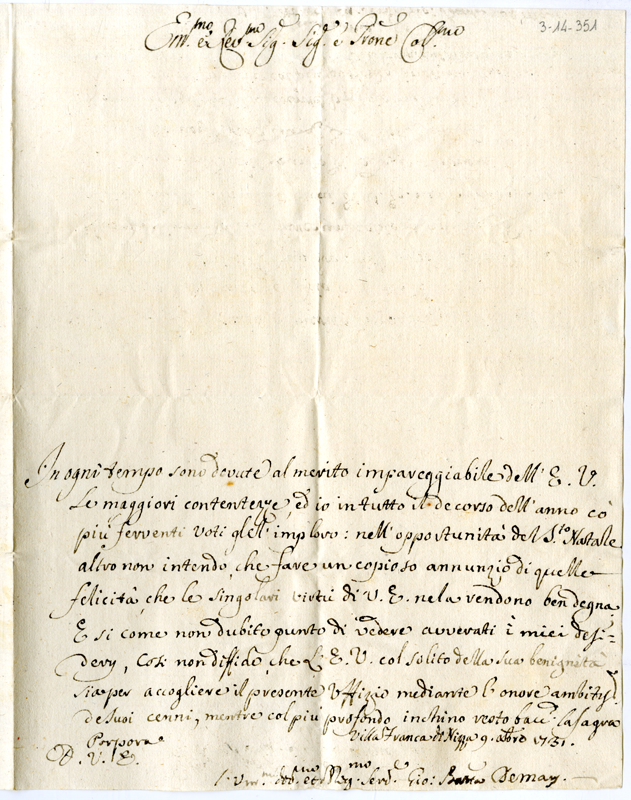 3-14-351
Em.mo e Rev.mo Sig. Sig. e Prone Col.mo
In ogni tempo sono dovute al merito impareggiabile dell' E. V.
Le maggiori contentezze, ed io in tutto il decorso dell' anno cò
più ferventi voti gle l' imploro: nell' opportunità del S.to Natale
altro non intendo, che fare un copioso annunzio di quelle
felicità, che le singolari virtù di V. E. ne la rendono ben degna
E si come non dubito punto di vedere avverati i miei desi=
derij, Così non diffido, che L' E. V. col solito della sua benignità
sia per accogliere il presente Uffizio mediante l' onore
de suoi cenni, mentre col più profondo inchino resto bacc. la sagra
Porpora
Villa Franca di Nizza 9. Xbre 1731.
D. V. E.
Gio: Batta Demay.